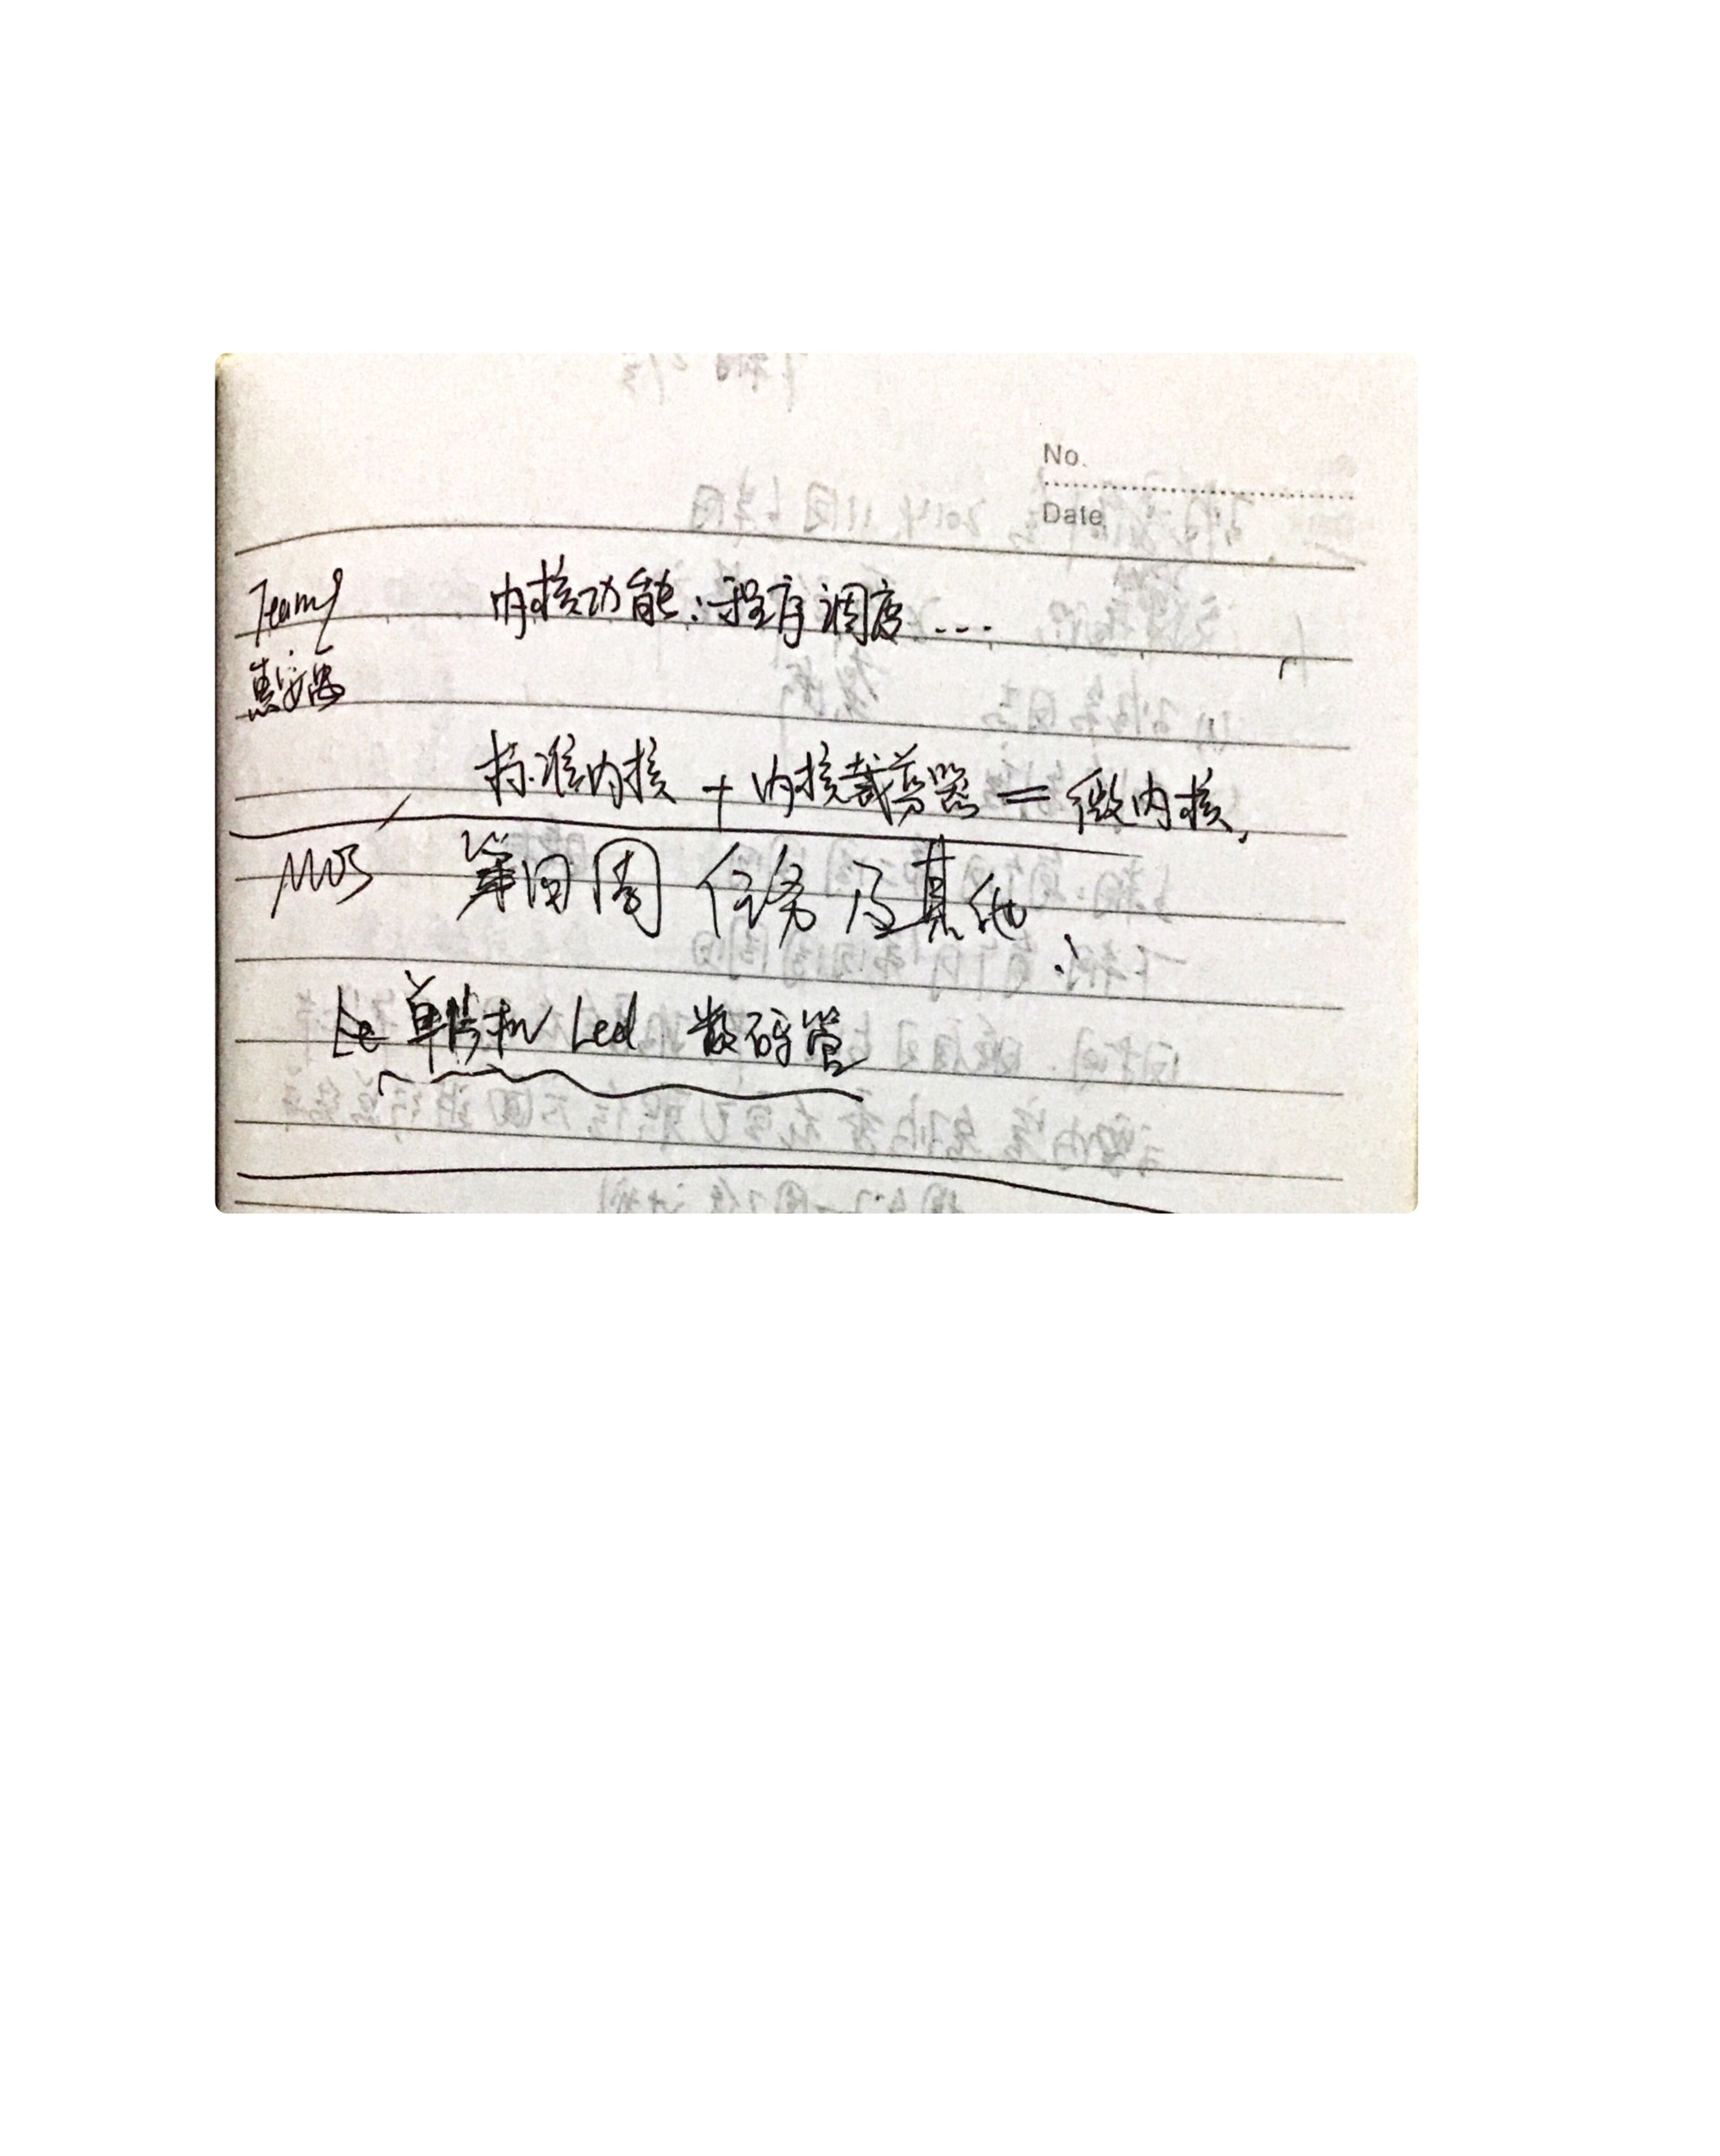 No.
Date
Team 内核功能：程序调度...
标准内核 + 内核裁剪器 = 微内核,
第四周 任务及其他
单片机 Led 数码管